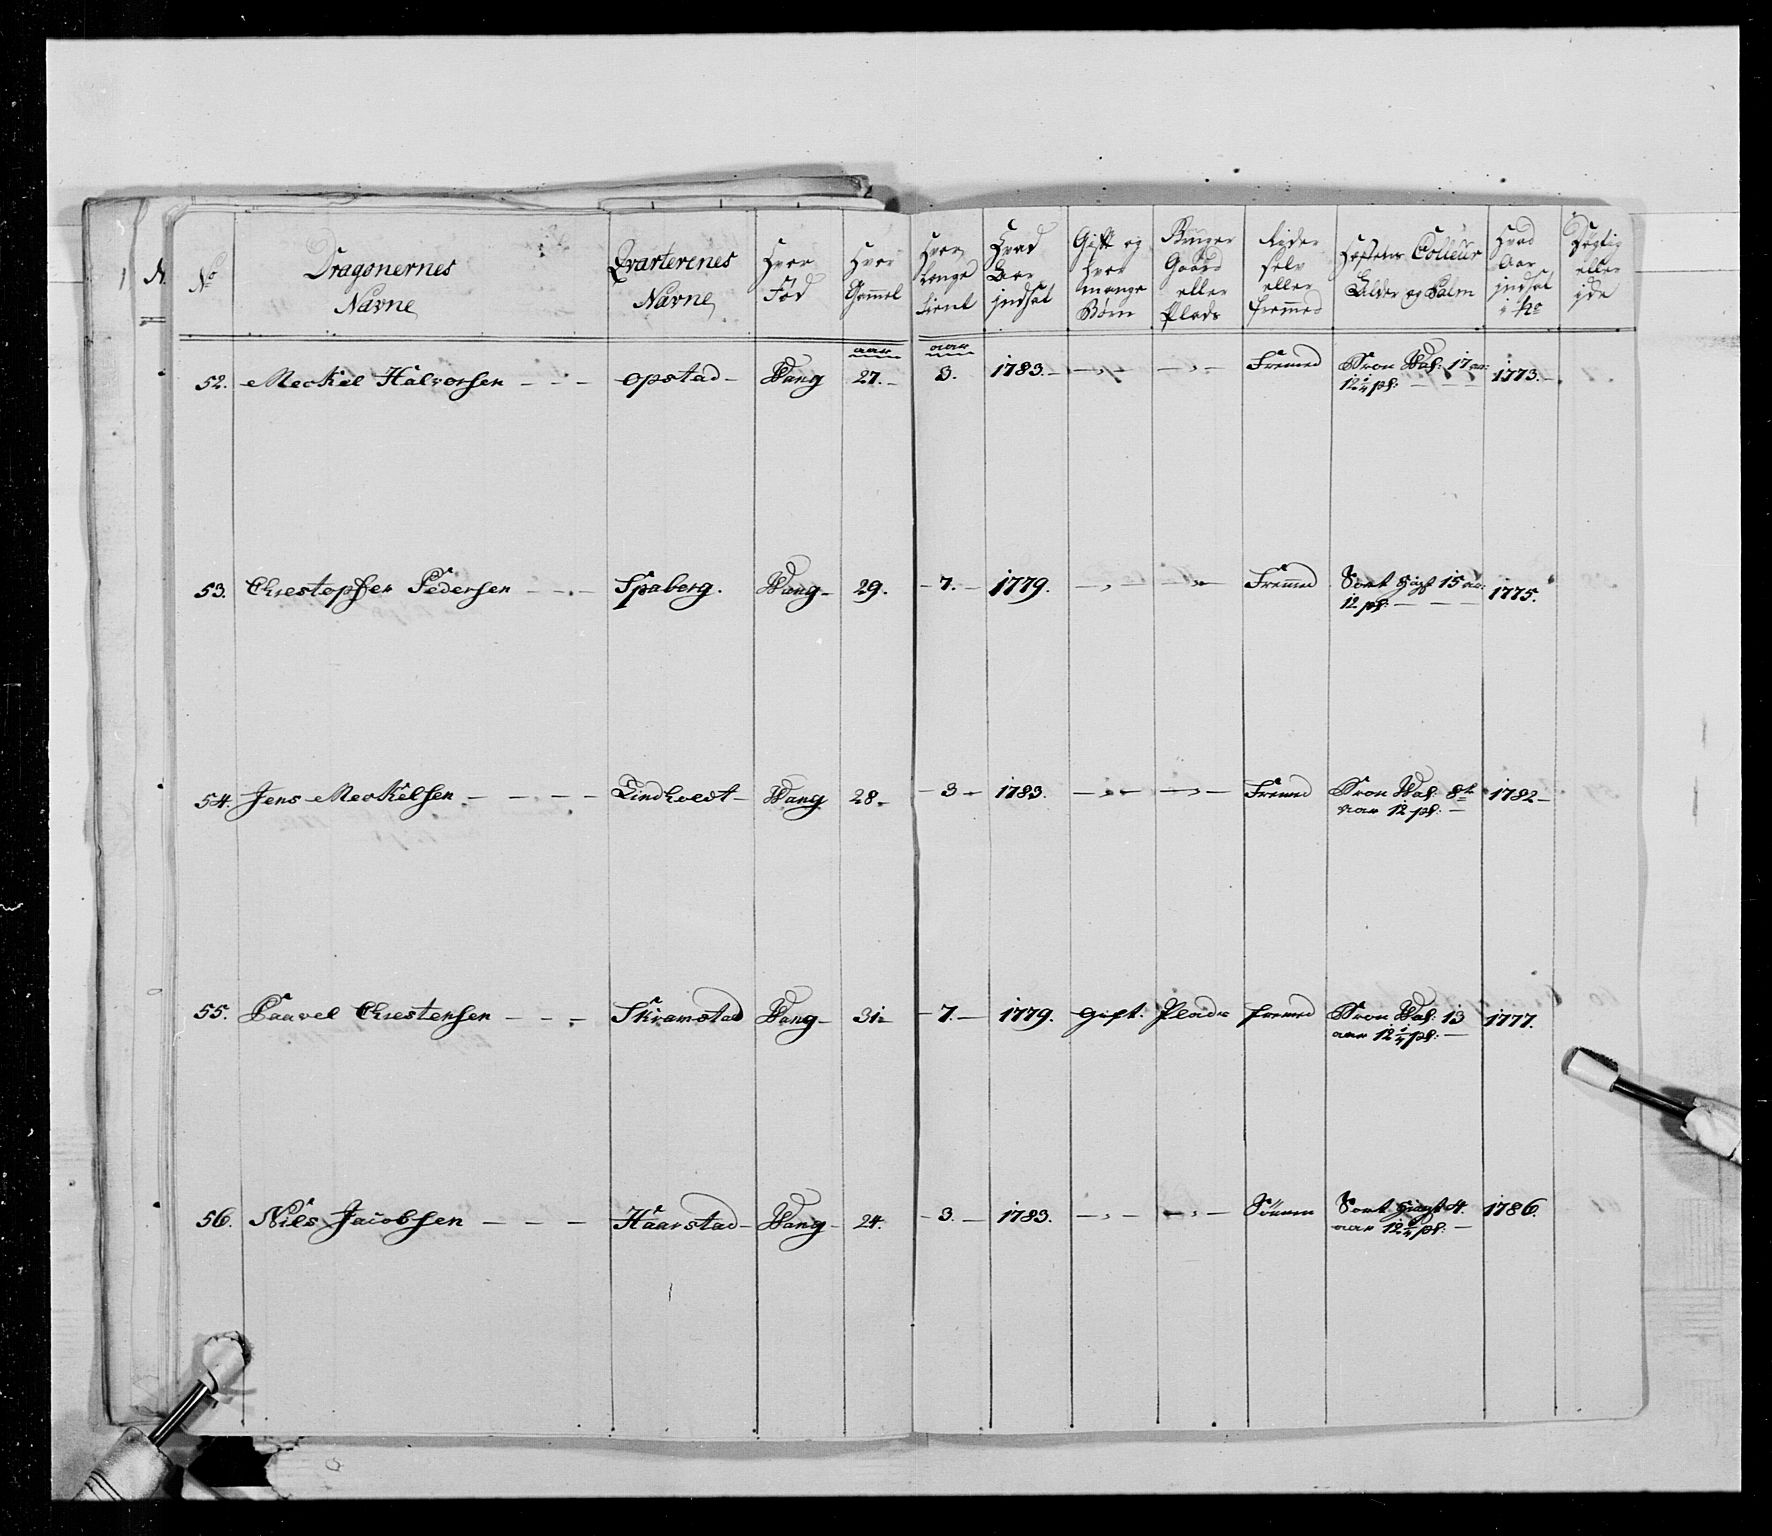 No Dragonernes Navne Qvarterenes Navne Hvor Fød Hvor Gammel Hvor Længe tient Hvad Aar indsat Gift og hvor mange Børn Bruger Gaard eller Plads Rider selv eller fremmed Hestens Colleur Alder og Palm Hvad Aar indsat i No Dygtig eller icke
aar aar
52. Merkel Halvorsen — opstad — Wang 27. — 3. 1783. — — — Fremed Bron Wal: 17 aar 12 1/4 pl: — 1773. —
53. Chrestopher Pedersen — Spaberg. Wang — 29. — 7. — 1779. — — Fremmed Sort Hägt 15 aar: 12 pl: — 1775.
54. Jens Merkelsen — Lindholdt — Wang 28 — — 3 — 1783. — — — Fremed Bron Wal: 8te aar 12 pl: — 1782 —
55. Paavel Chrestensen — Skramstad Wang — 31 — — 7. — 1779. Gift. Plads fremed Bron Wal: 13 aar 12 1/4 pl: — 1777.
56. Niels Jacobsen — Haarstad — Wang — 24. — 3. — 1783. — — — Sort Hägt 4. aar 12 1/4 pl: — 1786.